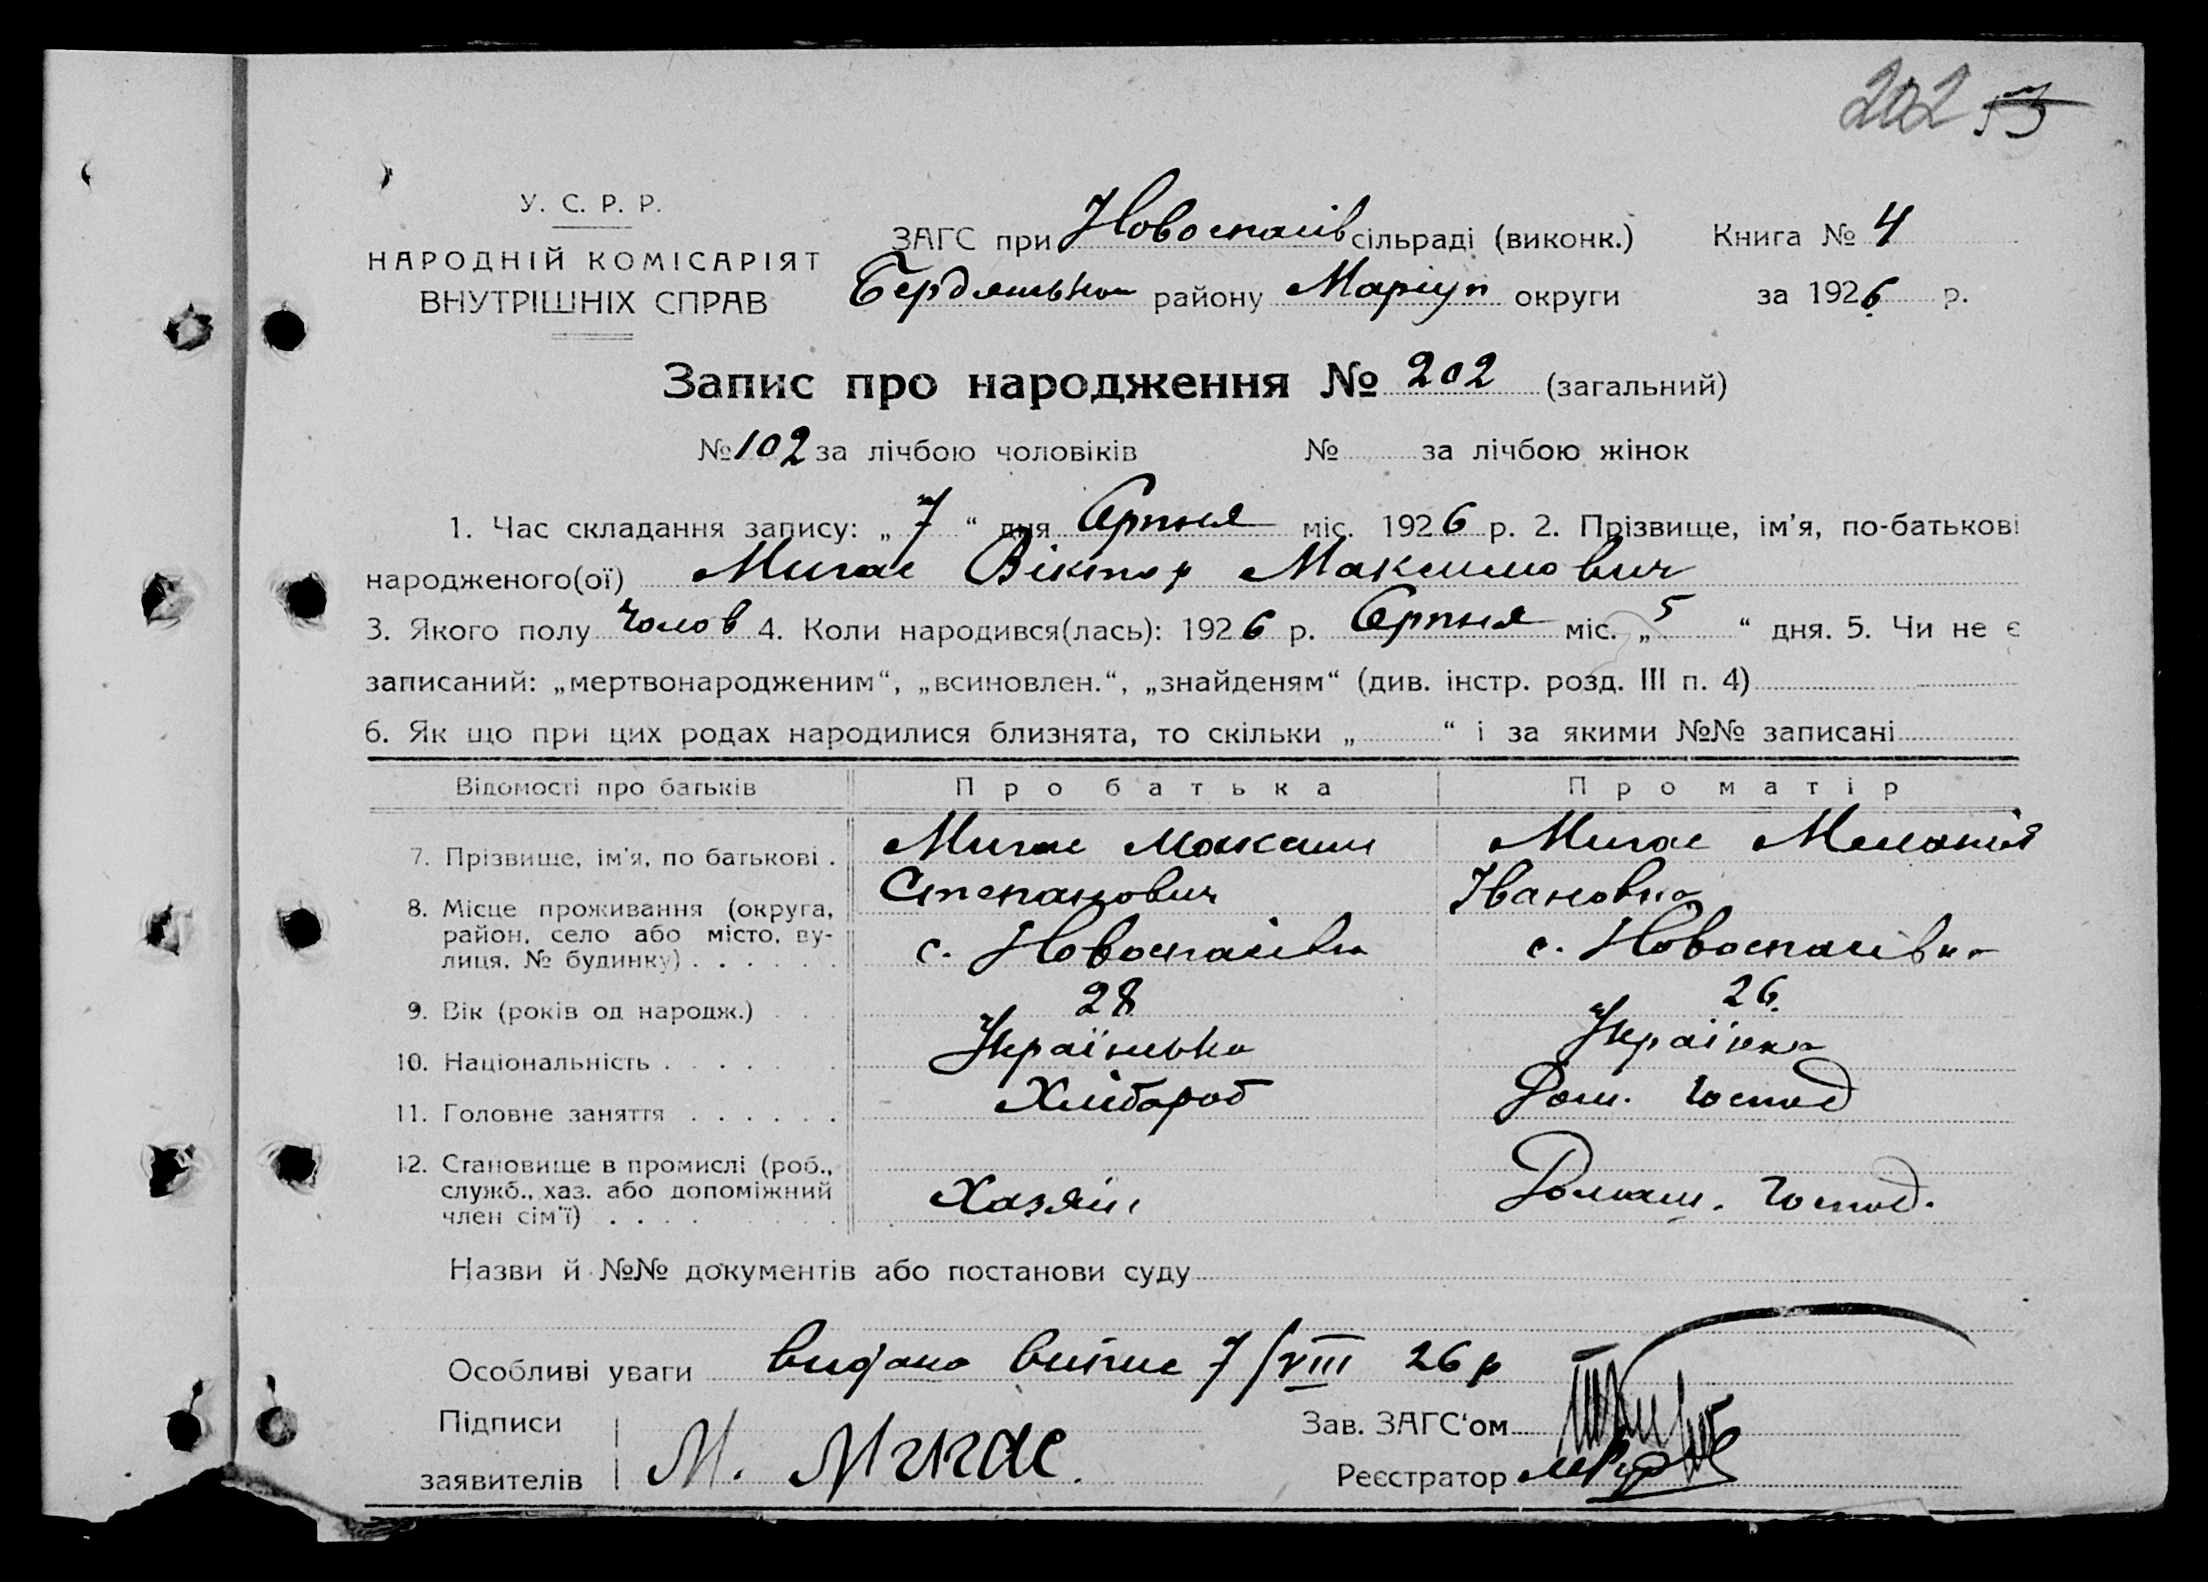 202 53
У. С. Р. Р.
НАРОДНІЙ КОМІСАРІЯТ
ВНУТРІШНІХ СПРАВ
ЗАГС при Новоспасів сільраді (виконк.) Книга № 4
Бердянськом району Маріуп округи за 1926 р.
Запис про народження № 202 (загальний)
№ 102 за лічбою чоловіків № за лічбою жінок
1. Час складання запису: „7“ дня Серпня міс. 1926 р. 2. Прізвище, ім'я, по-батькові
народженого(ої) Мигас Віктор Максимович
3. Якого полу Чолов 4. Коли народився(лась): 1926 р. Серпня міс. „5“ дня. 5. Чи не є
записаний: „мертвонародженим“, „всиновлен.“, „знайденям“ (див. інстр. розд. III п. 4)
6. Як що при цих родах народилися близнята, то скільки „ “ і за якими №№ записані
Відомості про батьків Про батька Про матір
7. Прізвище, ім'я, по батькові . Мигас Максим Мигас Меланія
Степанович Івановна
8. Місце проживання (округа,
район, село або місто, ву-
лиця, № будинку) . . . . . . с. Новоспасівка с. Новоспасівка
9. Вік (років од народж.) . . . 28 26
10. Національність . . . . . . Українська Українка
11. Головне заняття . . . . . . Хлібороб Дом. господ
12. Становище в промислі (роб.,
служб., хаз. або допоміжний
член сім'ї) . . . . Хазяїн Домаш. господ.
Назви й №№ документів або постанови суду
Особливі уваги видано випис 7/VIII 26 р
Підписи
заявителів М. Мигас
Зав. ЗАГС'ом
Реєстратор